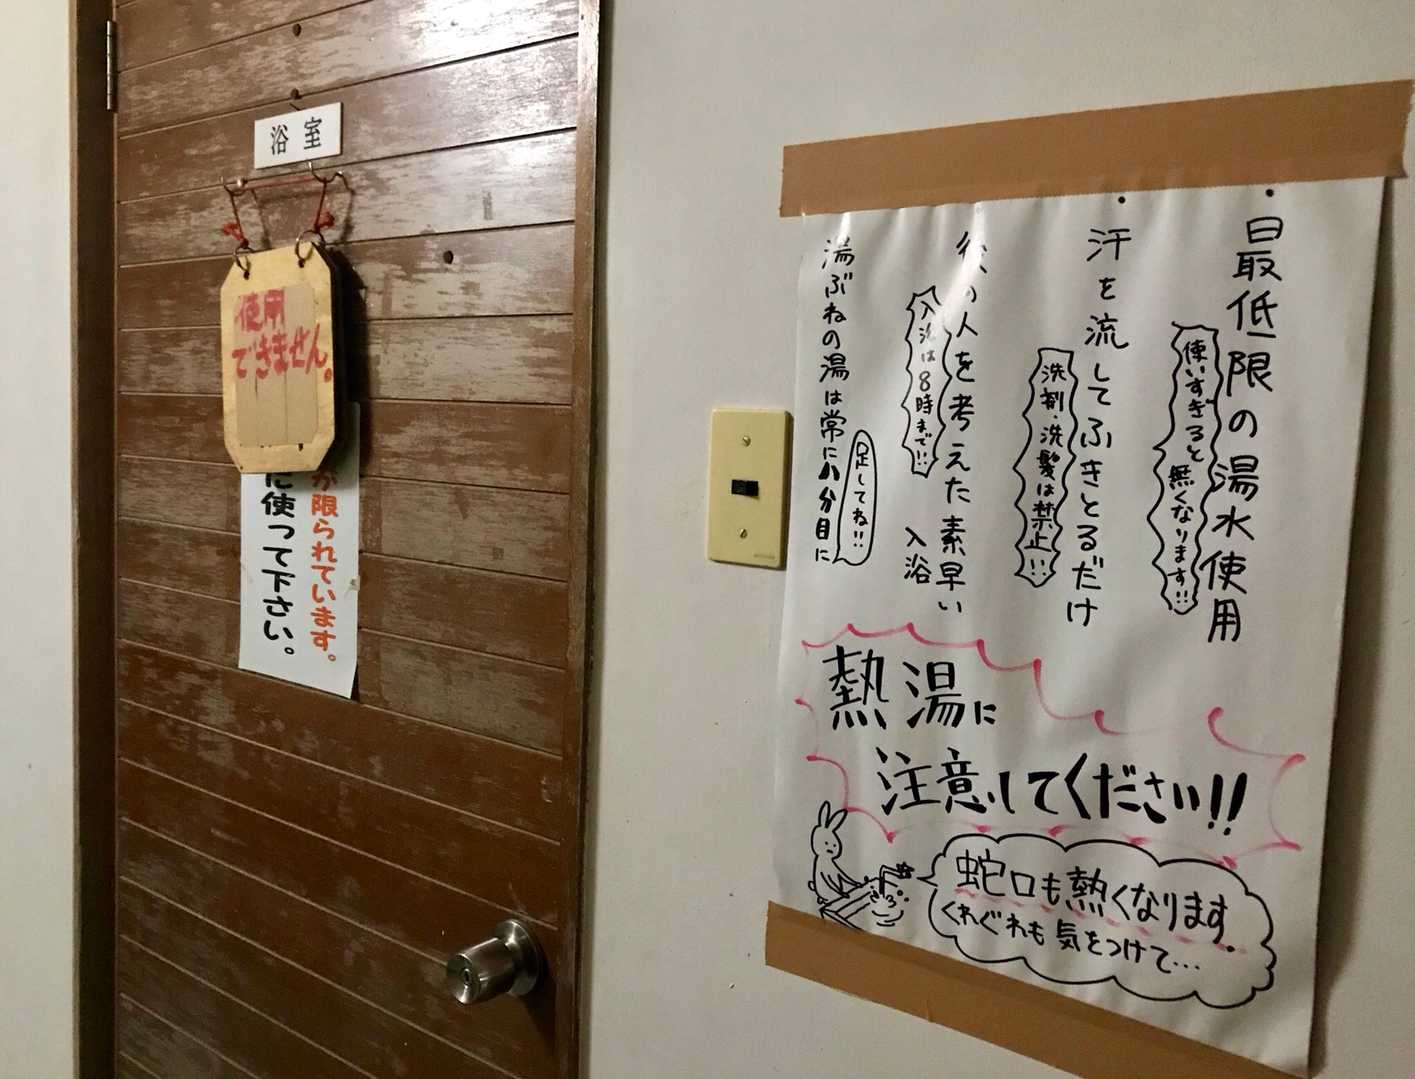 浴室
使用
できません。
限られています。
使って下さい。
・最低限の湯水使用
使いすぎると無くなります!!
・汗を流してふきとるだけ
洗剤・洗髪は禁止!!
後の人を考えた素早い
入浴
入浴は8時まで!!
湯ぶねの湯は常に八分目に
足してね!!
熱湯に
注意してください!!
蛇口も熱くなります。
くれぐれも気をつけて…